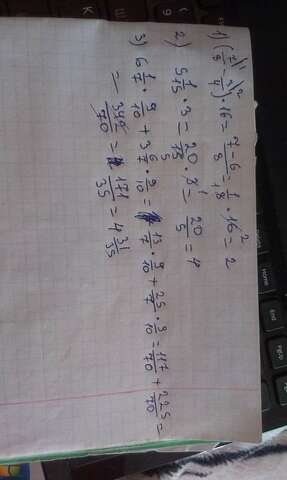 1) (7/8 \1 - 3/4 \2) · 16 = 7-6/8 = 1/8 · 16 2 = 2
2) 5 1/15 · 3 = 20/15 5 · 3 1 = 20/5 = 4
3) 6 1/7 · 9/10 + 3 6/7 · 9/10 = 13/7 · 9/10 + 25/7 · 9/10 = 117/70 + 225/70 =
= 342/70 = 171/35 = 4 31/35
Home
End